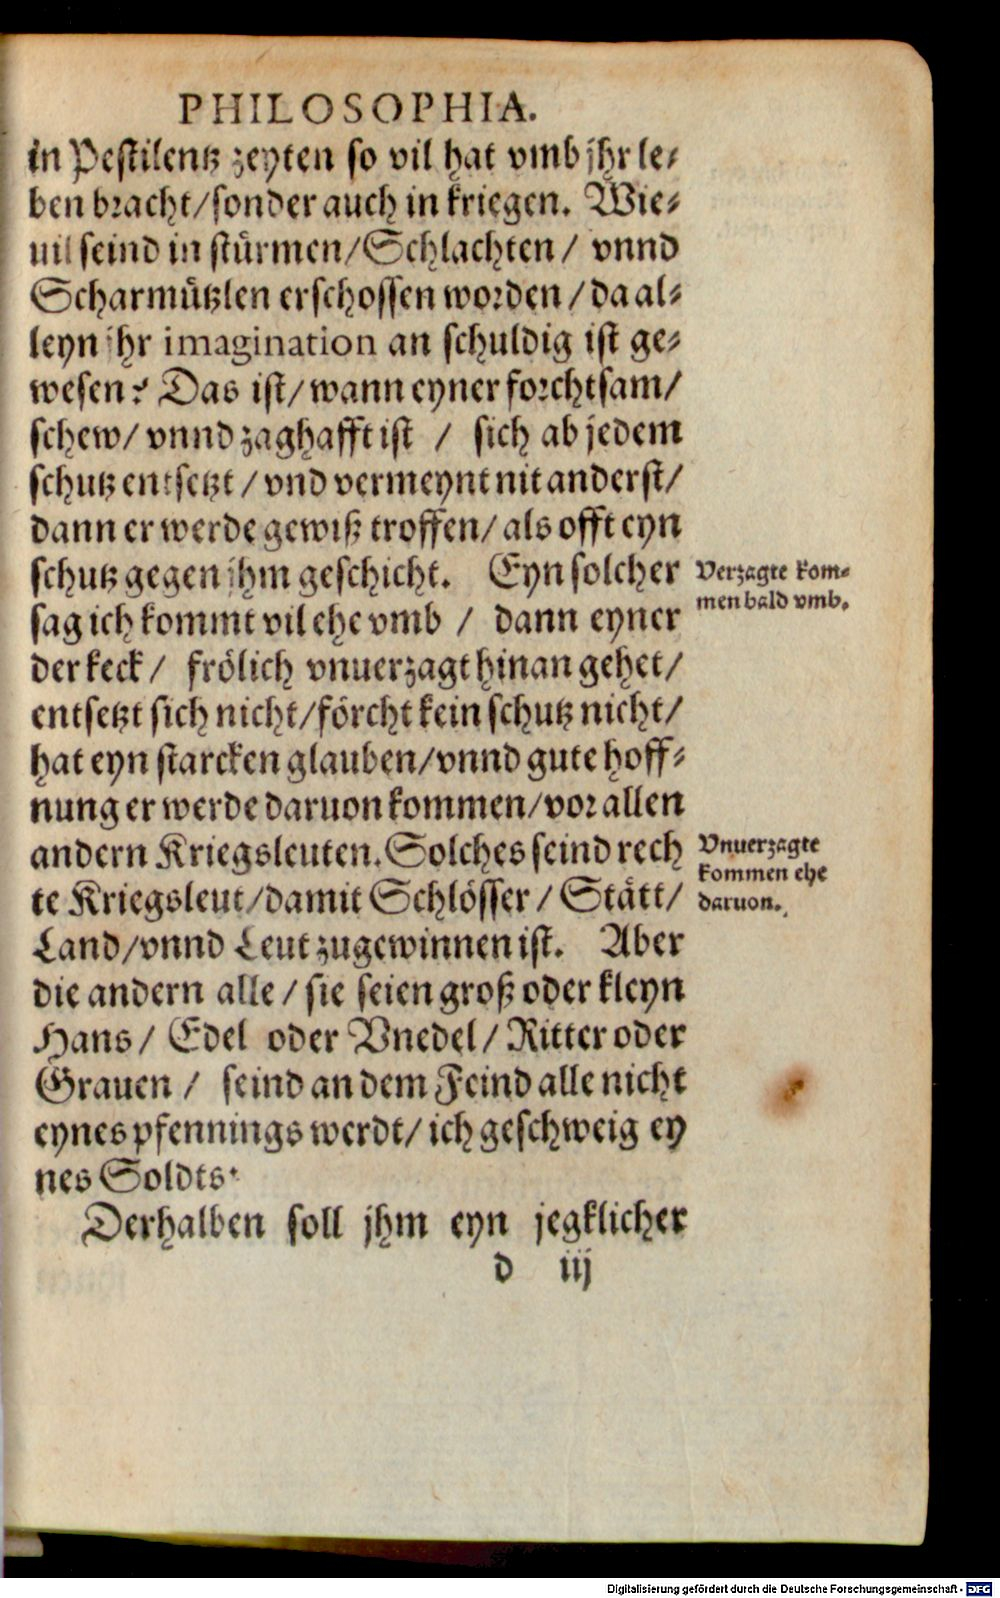 PHILOSOPHIA.
in Pestilentz zeyten so vil hat vmb jhr le-
ben bracht/sonder auch in kriegen. Wie-
uil seind in stürmen/Schlachten/ vnnd
Scharmützlen erschossen worden/da al-
leyn jhr imagination an schuldig ist ge-
wesen? Das ist/wann eyner forchtsam/
schew/ vnnd zaghafft ist / sich ab jedem
schutz entsetzt/vnd vermeynt nit anderst/
dann er werde gewiß troffen/als offt eyn
schutz gegen jhm geschicht. Eyn solcher
sag ich kommt vil ehe vmb / dann eyner
der keck/ frölich vnuerzagt hinan gehet/
entsetzt sich nicht/förcht kein schutz nicht/
hat eyn starcken glauben/vnnd gute hoff-
nung er werde daruon kommen/vor allen
andern Kriegsleuten. Solches seind rech
te Kriegsleut/damit Schlösser/Stätt/
Land/vnnd Leut zugewinnen ist. Aber
die andern alle/sie seien groß oder kleyn
Hans/ Edel oder Vnedel/Ritter oder
Grauen/ seind an dem Feind alle nicht
eynes pfennings werdt/ich geschweig ey
nes Soldts.
Derhalben soll jhm eyn jegklicher
d iij
Verzagte kom-
men bald vmb.
Vnuerzagte
kommen ehe
daruon.
Digitalisierung gefördert durch die Deutsche Forschungsgemeinschaft - DFG